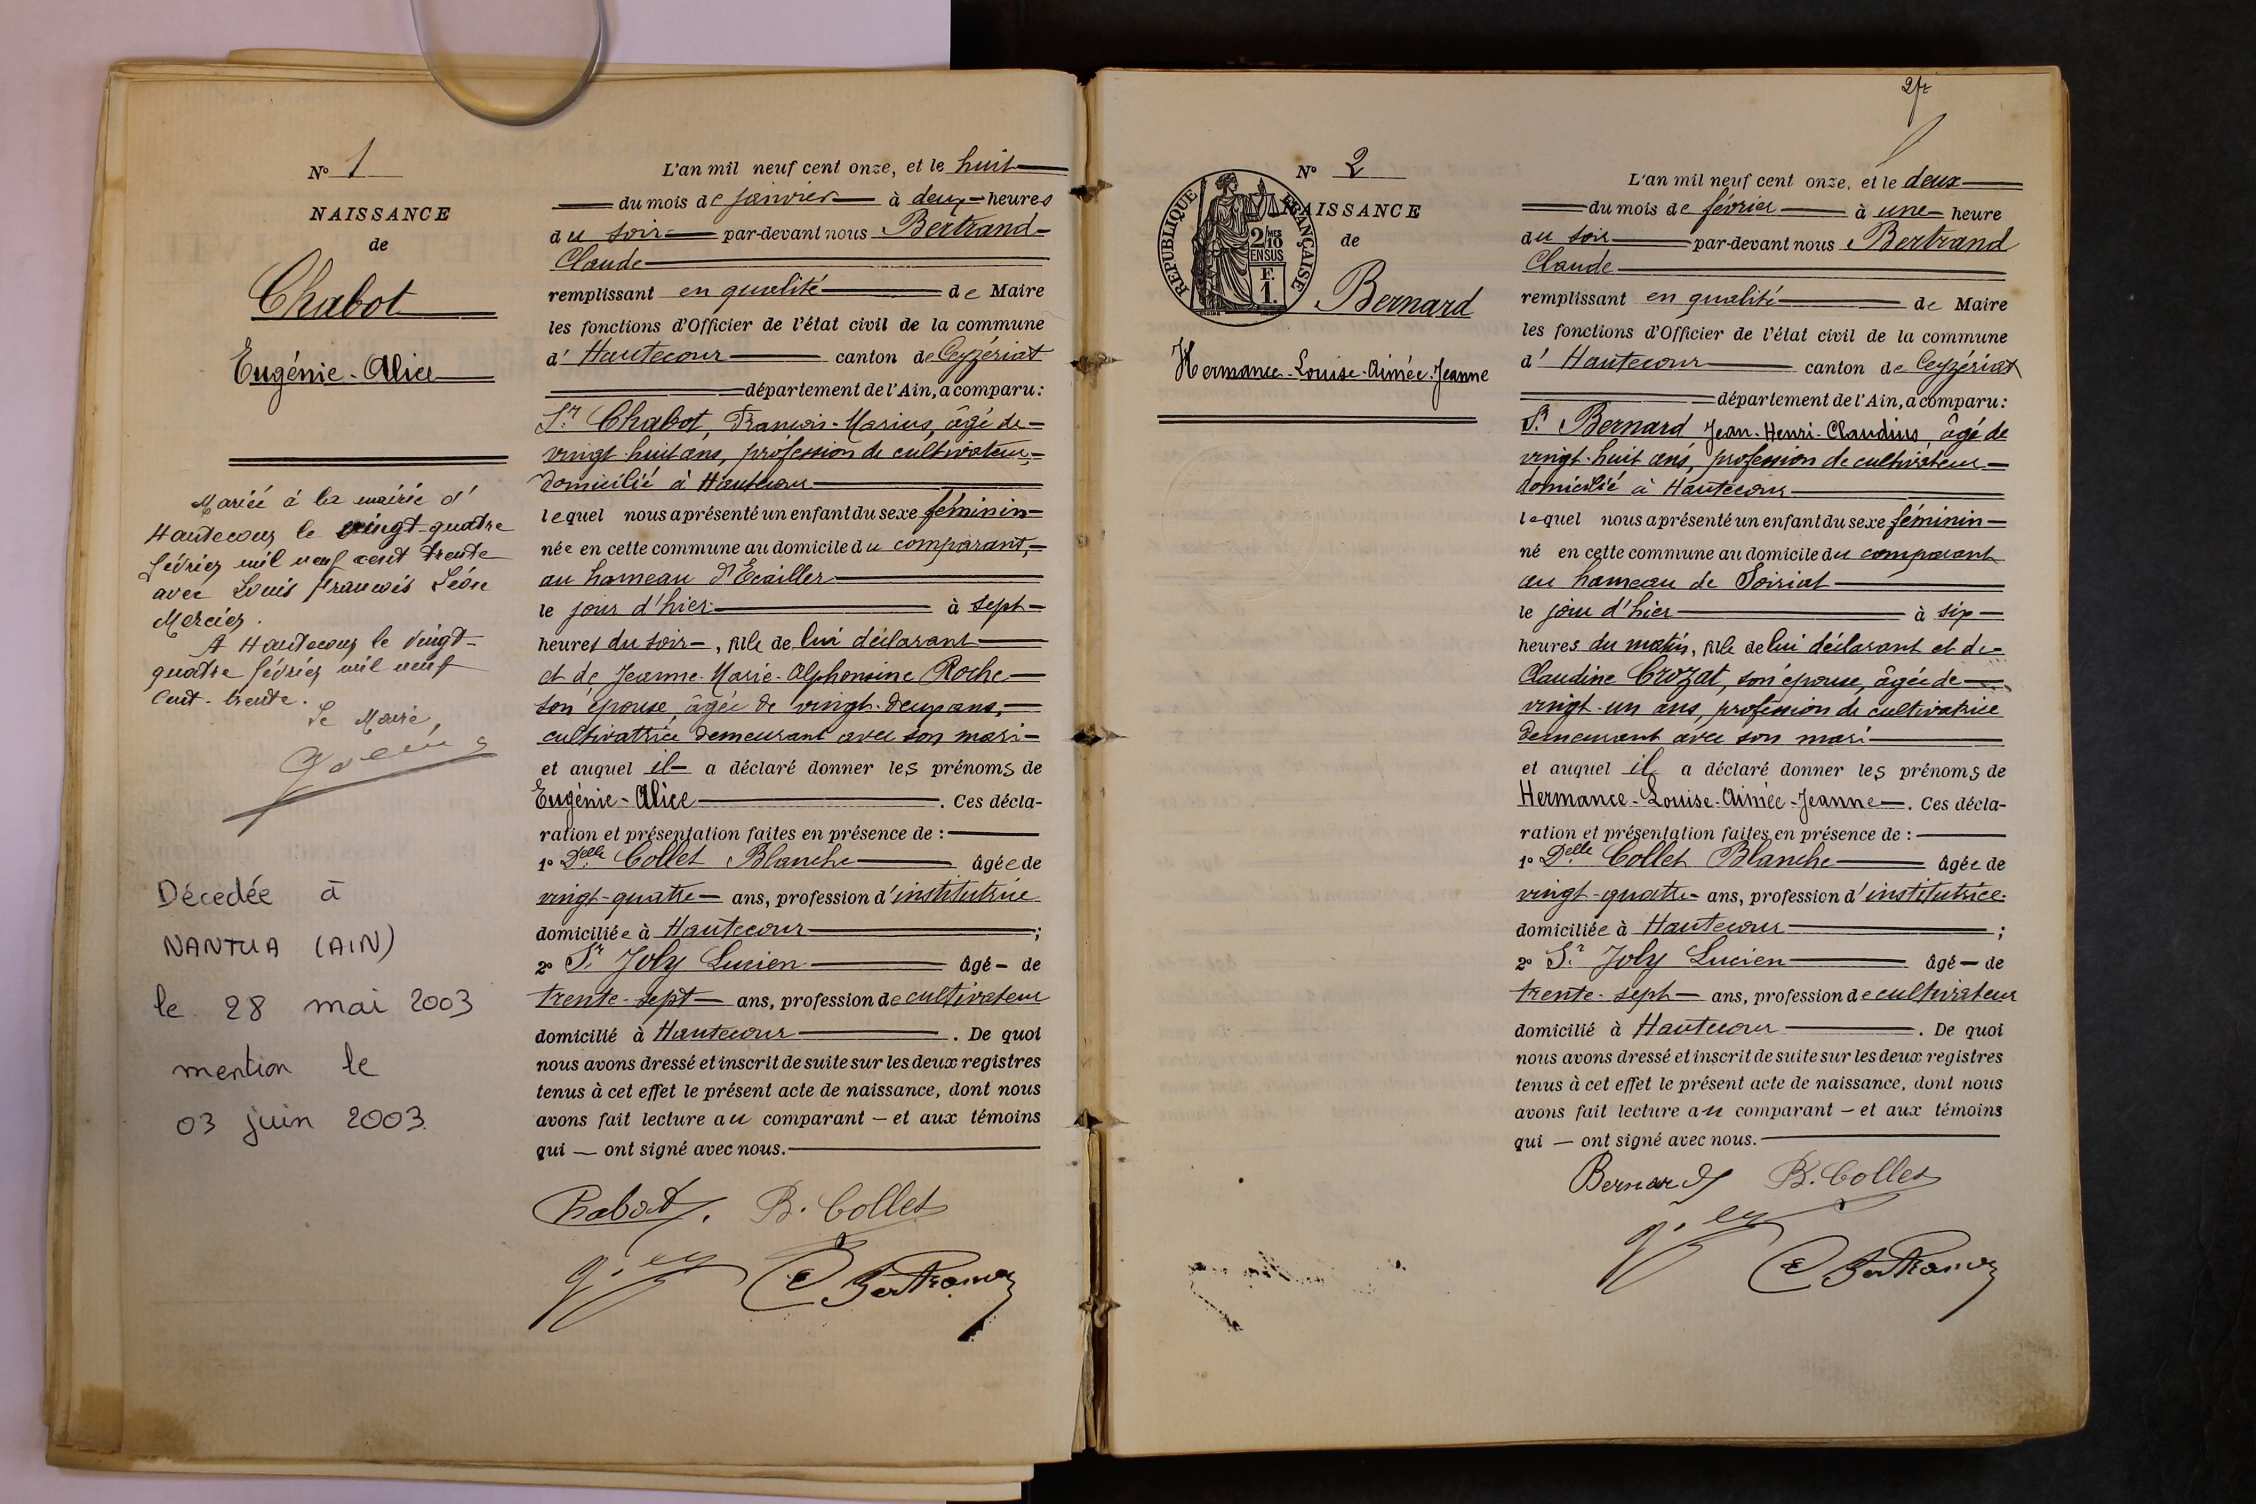 No 1
NAISSANCE
de
Chabot
Eugénie-Alice
Mariée à la mairie d'
Hautecour le vingt-quatre
février mil neuf cent trente
avec Louis François Léon
Mercier.
A Hautecour le vingt-
quatre février mil neuf
cent-trente.
Le Maire,
Décedée à
NANTUA (AIN)
le 28 mai 2003
mention le
03 juin 2003.
L'an mil neuf cent onze, et le huit
du mois de janvier à deux heures
du soir par-devant nous Bertrand-
Claude
remplissant en qualité de Maire
les fonctions d'Officier de l'état civil de la commune
d' Hautecour canton de Ceyzériat
département de l'Ain, a comparu:
Sr Chabot, François-Marius, âgé de
vingt-huit ans, profession de cultivateur,
domicilié à Hautecour
lequel nous a présenté un enfant du sexe féminin
née en cette commune au domicile du comparant,
au hameau d'Ecailler
le jour d'hier à sept
heures du soir, fille de lui déclarant
et de Jeanne-Marie-Alphonsine Roche
son épouse, âgée de vingt-deux ans,
cultivatrice demeurant avec son mari
et auquel il a déclaré donner les prénoms de
Eugénie-Alice. Ces décla-
ration et présentation faites en présence de :
1o Delle Collet Blanche âgée de
vingt-quatre ans, profession d'institutrice
domiciliée à Hautecour ;
2o Sr. Joly Lucien âgé de
trente-sept ans, profession de cultivateur
domicilié à Hautecour. De quoi
nous avons dressé et inscrit de suite sur les deux registres
tenus à cet effet le présent acte de naissance, dont nous
avons fait lecture au comparant - et aux témoins
qui - ont signé avec nous.
Chabot. B. Collet
Bertrand
2fr
No 2
NAISSANCE
de
RÉPUBLIQUE FRANÇAISE
2/10 MES
EN SUS
F.
1.
Bernard
Hermance-Louise-Aimée-Jeanne
L'an mil neuf cent onze, et le deux
du mois de février à une heure
du soir par-devant nous Bertrand
Claude
remplissant en qualité de Maire
les fonctions d'Officier de l'état civil de la commune
d' Hautecour canton de Ceyzériat
département de l'Ain, a comparu:
Sr. Bernard Jean-Henri-Claudius, âgé de
vingt-huit ans, profession de cultivateur
domicilié à Hautecour
lequel nous a présenté un enfant du sexe féminin
né en cette commune au domicile du comparant
au hameau de Soiriat
le jour d'hier à six
heures du matin, fille de lui déclarant et de
Claudine Crozat, son épouse, âgée de
vingt-un ans, profession de cultivatrice
demeurant avec son mari
et auquel il a déclaré donner les prénoms de
Hermance-Louise-Aimée-Jeanne. Ces décla-
ration et présentation faites en présence de :
1o Delle Collet Blanche âgée de
vingt-quatre ans, profession d'institutrice
domiciliée à Hautecour ;
2o Sr. Joly Lucien âgé de
trente-sept ans, profession de cultivateur
domicilié à Hautecour. De quoi
nous avons dressé et inscrit de suite sur les deux registres
tenus à cet effet le présent acte de naissance, dont nous
avons fait lecture au comparant - et aux témoins
qui - ont signé avec nous.
Bernard B. Collet
Bertrand